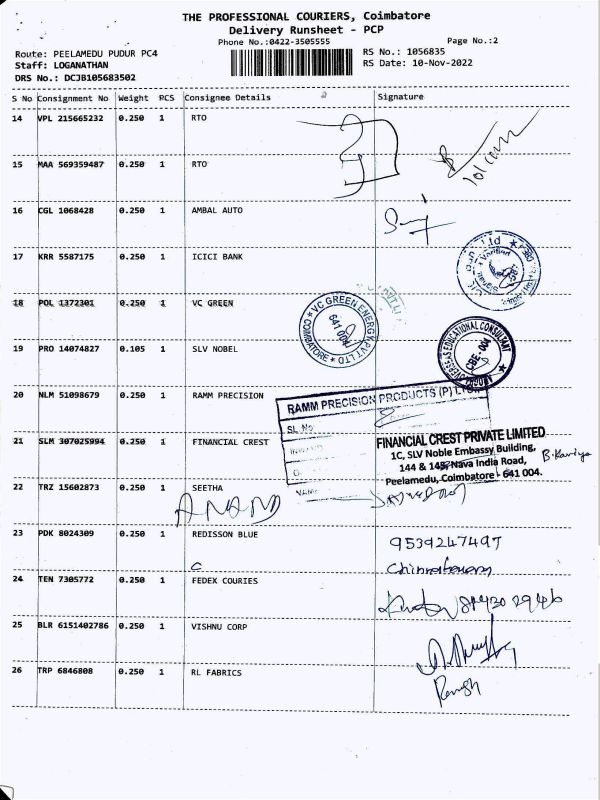 THE PROFESSIONAL COURIERS, Coimbatore
Delivery Runsheet - PCP
Phone No.:0422-3505555
Page No.:2
Route: PEELAMEDU PUDUR PC4
RS No.: 1056835
Staff: LOGANATHAN
RS Date: 10-Nov-2022
DRS No.: DCJB105683502
S No Consignment No Weight PCS Consignee Details Signature
14 VPL 215665232 0.250 1 RTO
15 MAA 569359487 0.250 1 RTO
16 CGL 1068428 0.250 1 AMBAL AUTO
17 KRR 5587175 0.250 1 ICICI BANK
18 POL 1372301 0.250 1 VC GREEN
VC GREEN ENERGY PVT LTD
641 004
COIMBATORE
19 PRO 14074827 0.105 1 SLV NOBEL
OVERSEAS EDUCATIONAL CONSULTANT
CBE-004
20 NLM 51098679 0.250 1 RAMM PRECISION
RAMM PRECISION PRODUCTS (P) LTD
SL No
21 SLM 307025994 0.250 1 FINANCIAL CREST
FINANCIAL CREST PRIVATE LIMITED
1C, SLV Noble Embassy Building,
144 & 145, Nava India Road,
Peelamedu, Coimbatore - 641 004.
B. Kaviya
22 TRZ 15602873 0.250 1 SEETHA
NAME
ANAND
23 PDK 8024309 0.250 1 REDISSON BLUE
9539247497
24 TEN 7305772 0.250 1 FEDEX COURIES
25 BLR 6151402786 0.250 1 VISHNU CORP
26 TRP 6846808 0.250 1 RL FABRICS